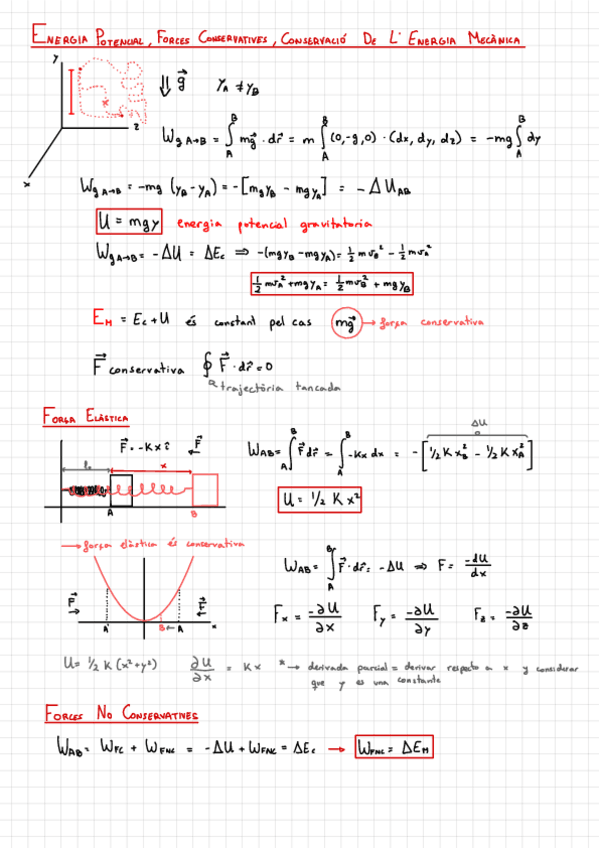 ENERGIA POTENCIAL, FORCES CONSERVATIVES, CONSERVACIÓ DE L' ENERGIA MECÀNICA
y
z
x
g⃗ yA ≠ yB
WgA→B = ∫_A^B mg⃗ · dr⃗ = m ∫_A^B (0,-g,0) · (dx, dy, dz) = -mg ∫_A^B dy
WgA→B = -mg (yB - yA) = -[mgyB - mgyA] = -ΔUAB
U = mgy energia potencial gravitatoria
WgA→B = -ΔU = ΔEc ⇒ -(mgyB - mgyA) = 1/2 mvB² - 1/2 mvA²
1/2 mvA² + mgyA = 1/2 mvB² + mgyB
EM = Ec + U és constant pel cas mg⃗ → força conservativa
F⃗ conservativa ∮ F⃗ · dr⃗ = 0
trajectòria tancada
FORÇA ELÀSTICA
F⃗ = -Kx î F⃗
l₀ x
A B
ΔU
WAB = ∫_A^B F⃗ dr⃗ = ∫_A^B -Kx dx = -[1/2 K xB² - 1/2 K xA²]
U = 1/2 K x²
→ força elàstica és conservativa
F⃗ F⃗
A' B ← A x
WAB = ∫_A^B F⃗ · dr⃗ = -ΔU ⇒ F = -dU/dx
Fx = -∂U/∂x Fy = -∂U/∂y Fz = -∂U/∂z
U = 1/2 K (x² + y²) ∂U/∂x = Kx * → derivada parcial = derivar respecto a x y considerar
que y es una constante
FORCES NO CONSERVATIVES
WAB = WFC + WFNC = -ΔU + WFNC = ΔEc → WFNC = ΔEM